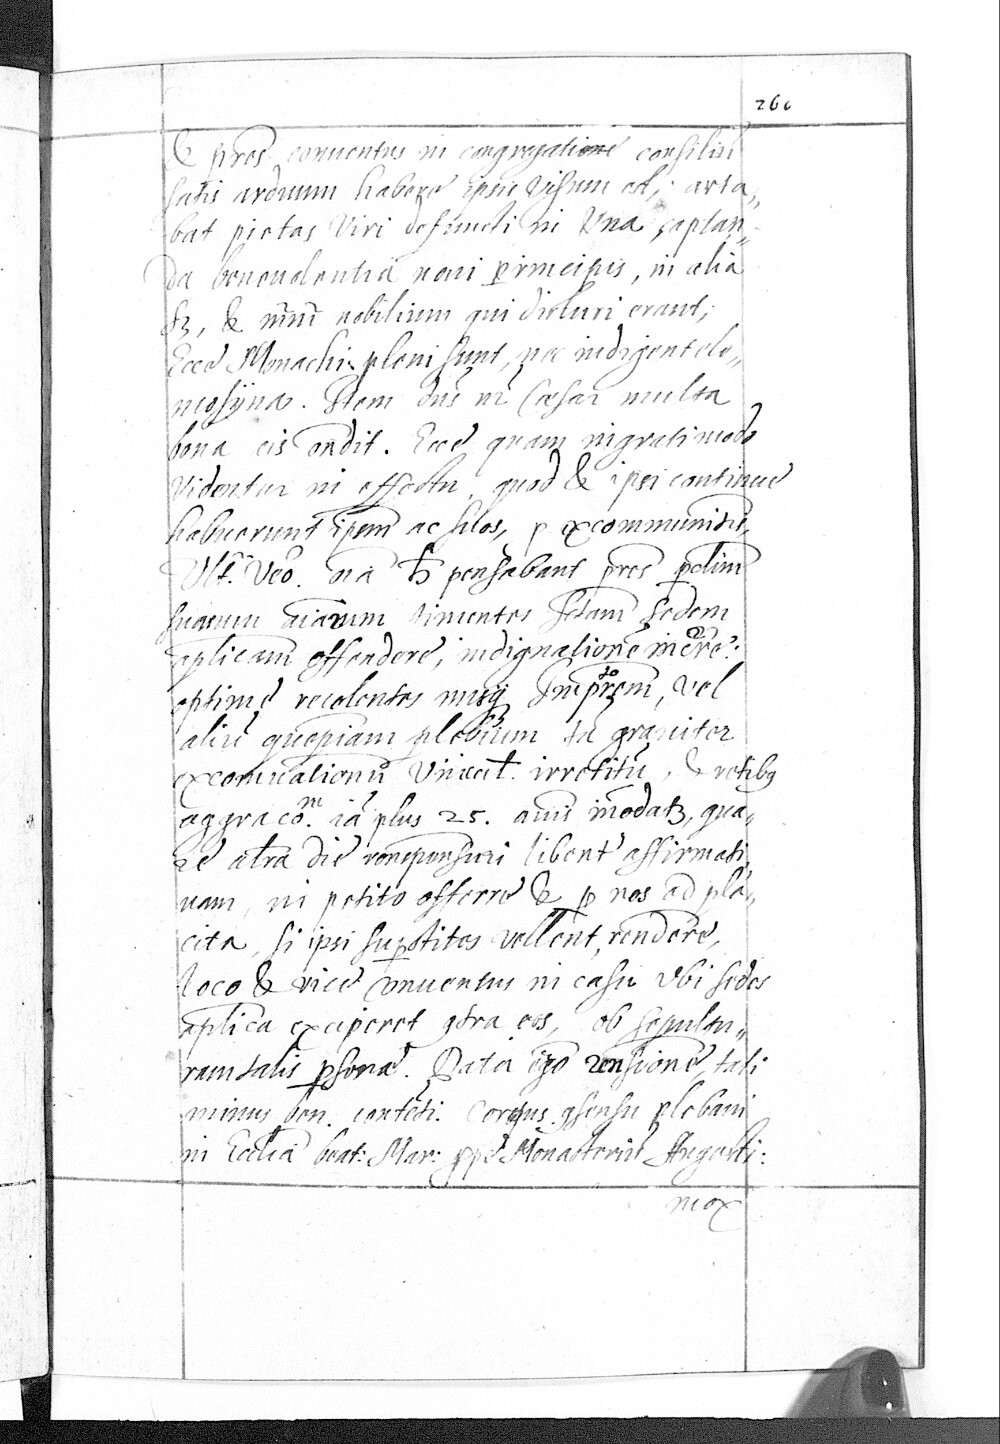 260
& fr̄es conventus in congregatione consilii
satis arduum habere ipsis visum est, arta„
bat pietas Viri defuncti in Una captan„
da benevolentia novi principis, in alia
& nobilium qui dicturi erant;
Ecce Monachi pleni sunt, nec indigent ele„
mosijna. Item dn̄s nr̄ Cæsar multa
bona eis on̄dit. Ecce quam ingrati modo
Videntur in effectu, quod & ipsi continue
habuerunt ip̄m ac filos, p excommunitis,
Ult. Vero. na pensabant pres
suarum aīarum timentes S̄tam sedem
ap̄licam offendere, indignationē incrē:
optime recolentes Imp̄rem, vel
aliū quēpiam plebium tā graviter
excom̄ationū vincul. irretitū, & retibq
aggraco.m iā plus 25. annis in̄odatȝ, qua„
re alt̄ra die responsuri libent affirmati
vam, in petito offerre & p nos ad pla„
cita, si ipsi suptites vellent, rendere,
loco & vice Conventus in casu Ubi sedes
ap̄lica exciperet gtra eos, ob sepultu„
ram talis p̄sonæ. Data ērgo rensione, tali
minus ben. contēti. Corpus gsensu plebani
in Ecc̄lia beat: Mar: ppe Monasteriū Augusti:
mox